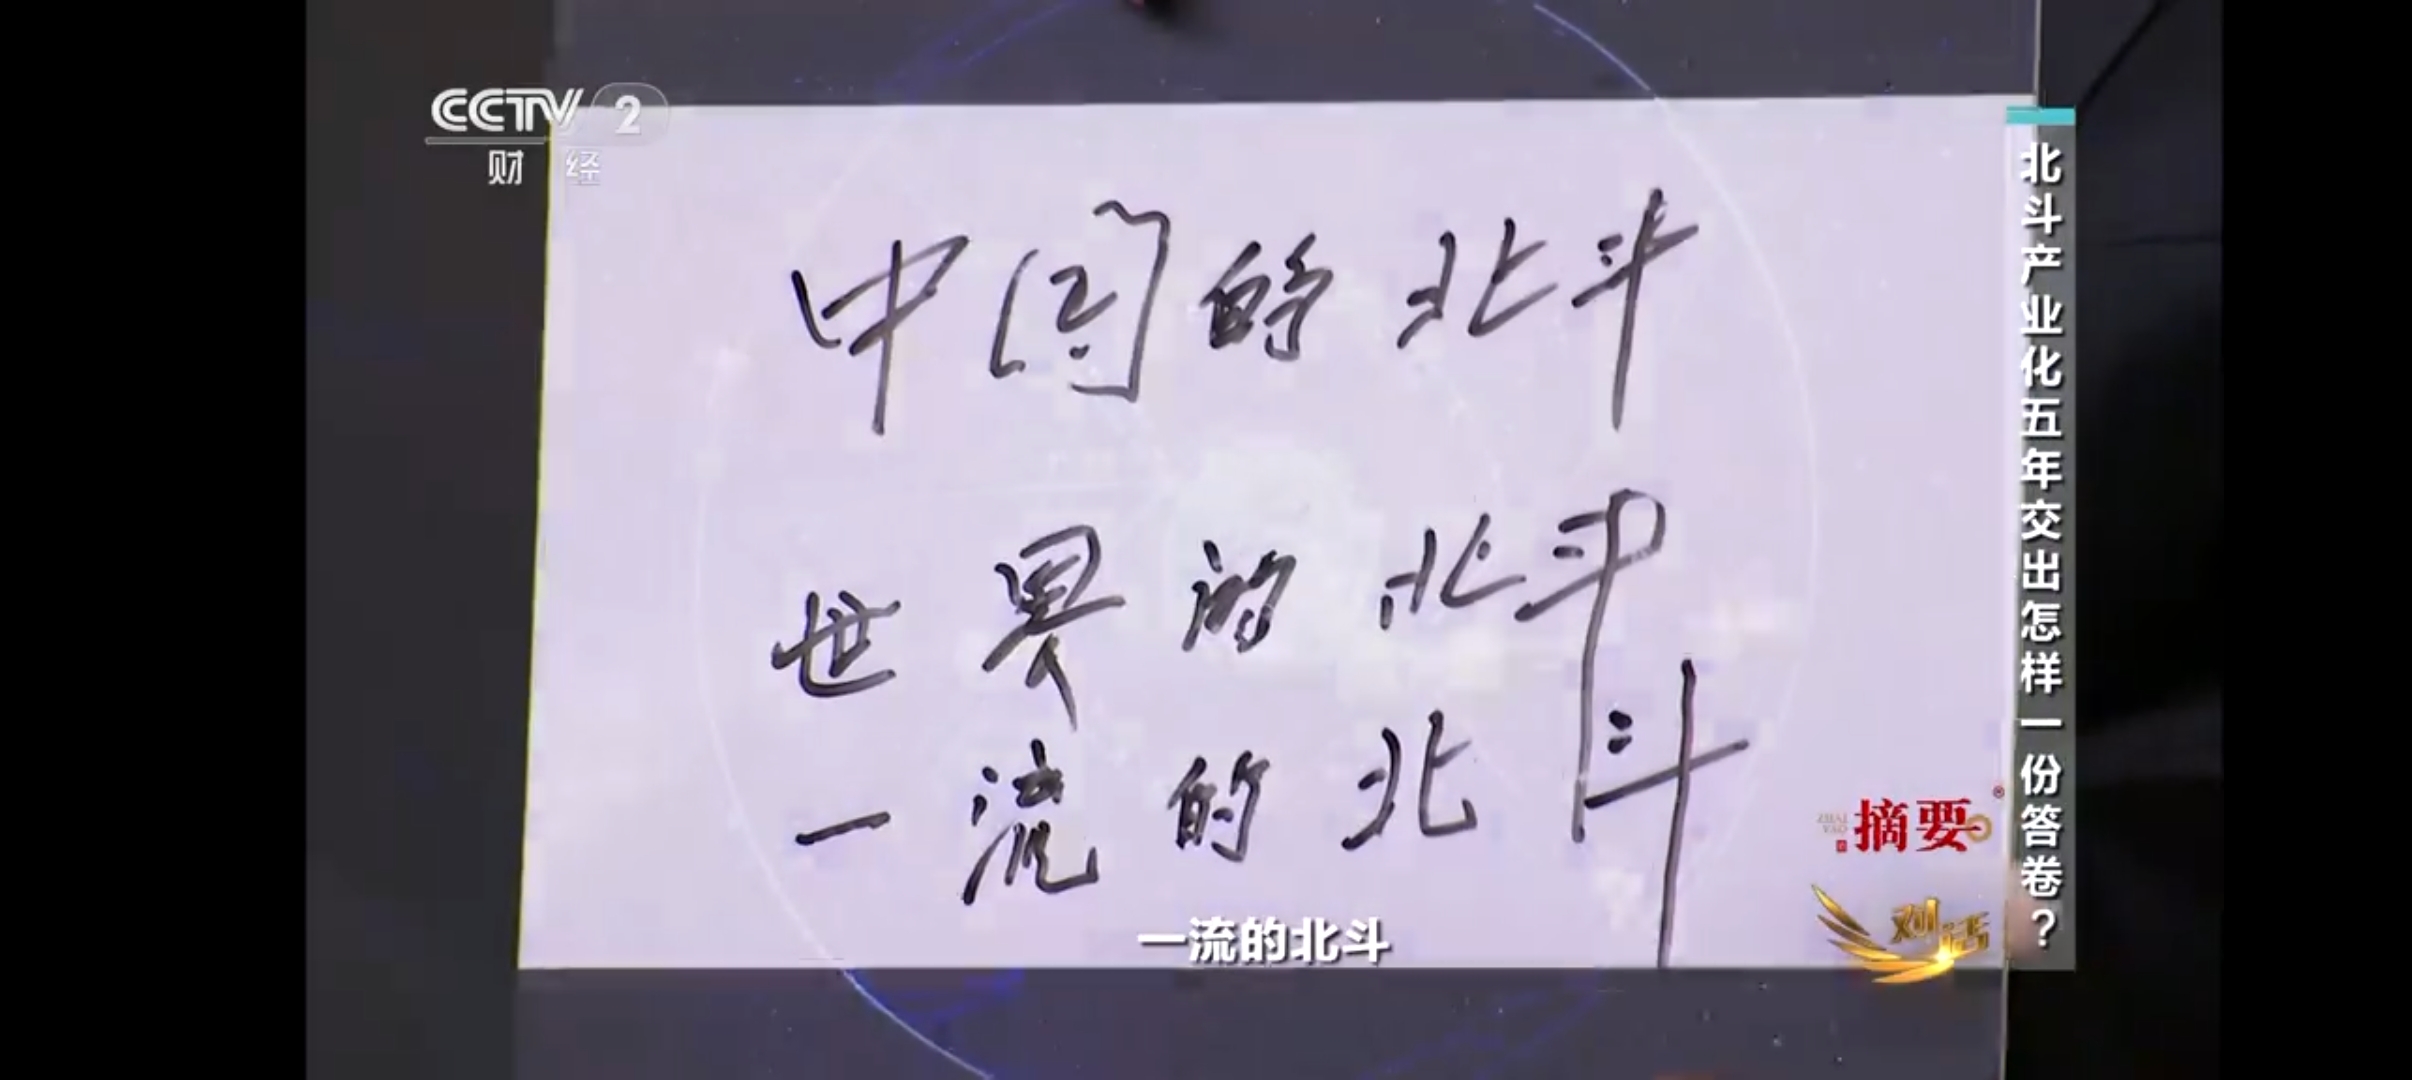 CCTV 2
财经
中国的北斗
世界的北斗
一流的北斗
一流的北斗
北斗产业化五年交出怎样一份答卷？
ZHAI
YAO
摘要
对话